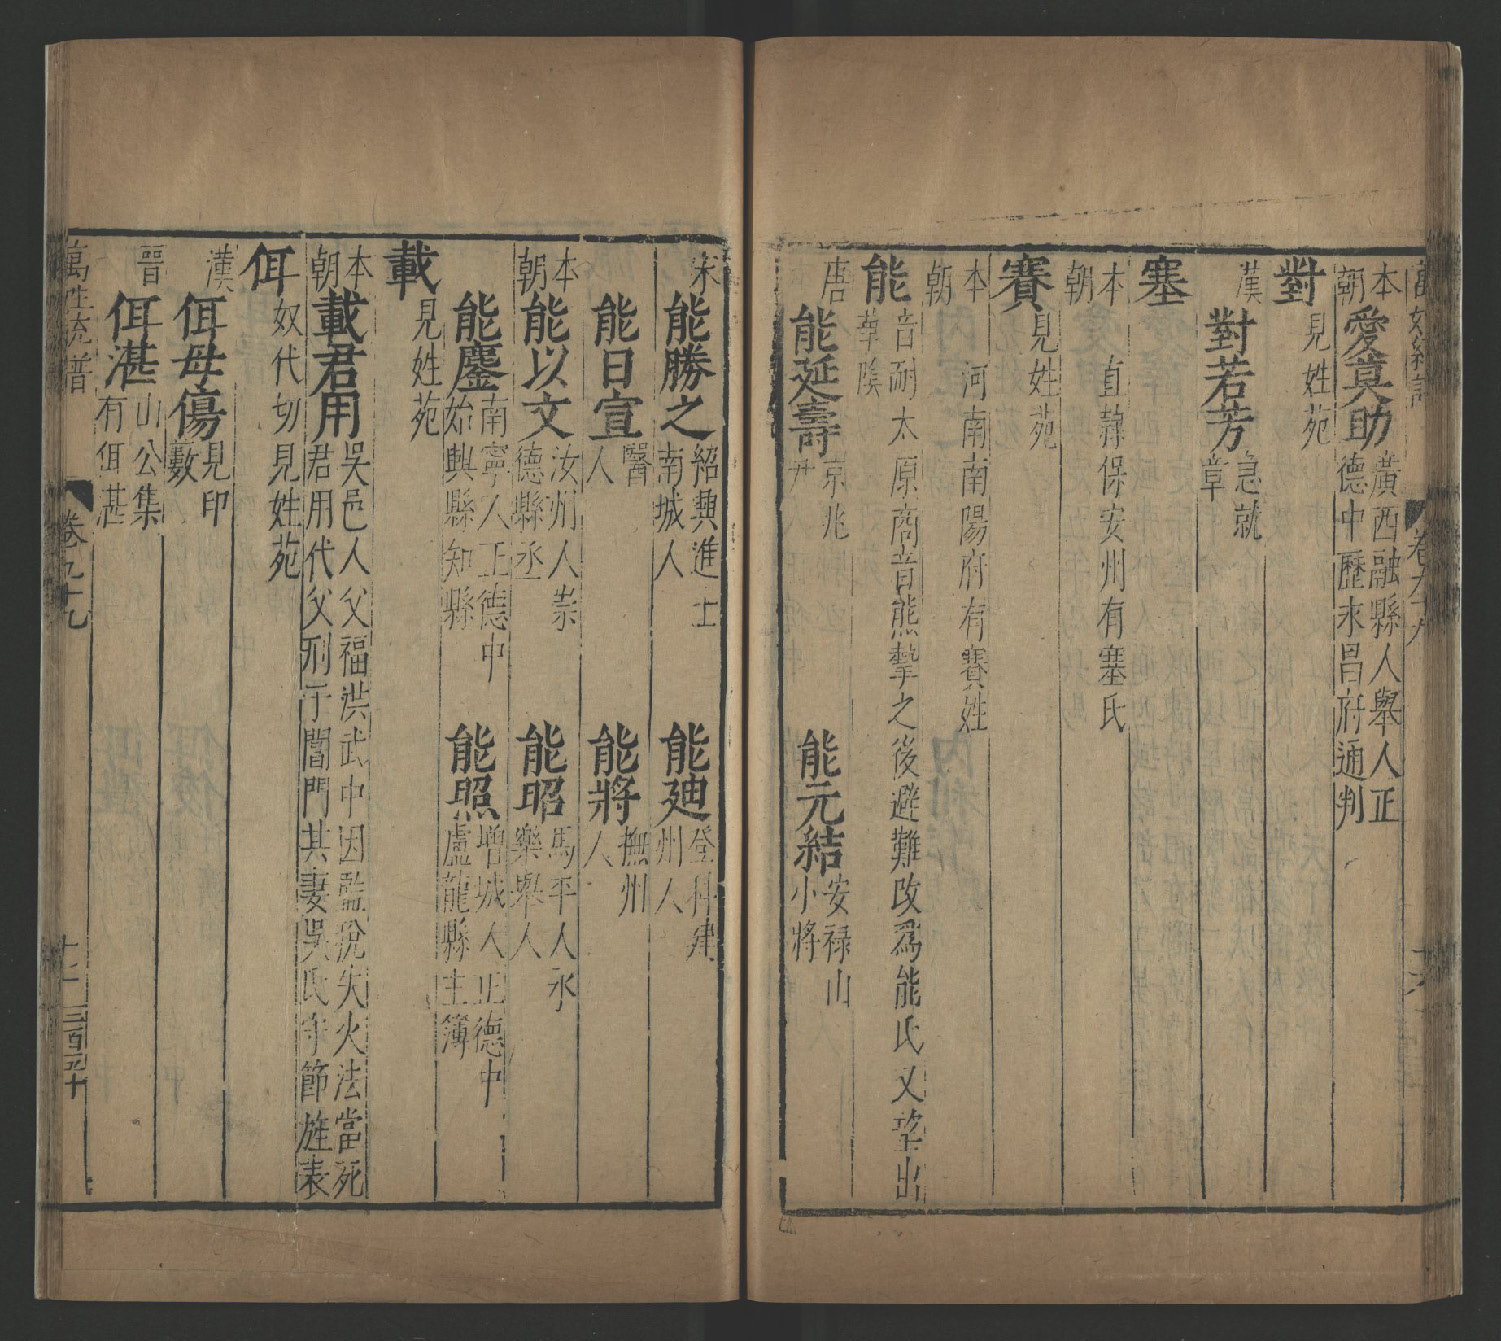 萬姓統譜
卷九十九
十六
本朝
愛眞助
廣西融縣人舉人正
德中歷來昌府通判
對
見姓苑
漢
對若芳
急就
章
塞
本朝
直隷保安州有塞氏
賽
見姓苑
本朝
河南南陽府有賽姓
能
音耐太原商音熊摯之後避難改爲能氏又望出
華隂
唐
能延壽
京兆
尹
能元結
安禄山
小將
宋
能勝之
紹興進士
南城人
能廸
登科建
州人
能日宣
醫
人
能將
撫州
人
本朝
能以文
汝州人崇
德縣丞
能昭
馬平人永
樂舉人
能鏖
南寧人正德中
始興縣知縣
能照
增城人正德中
盧龍縣主簿
載
見姓苑
本朝
載君用
吳邑人父福洪武中因監稅失火法當死
君用代父刑于閶門其妻吳氏守節旌表
佴
奴代切見姓苑
漢
佴毋傷
見印
藪
晉
佴湛
山公集
有佴湛
萬姓統譜
卷九十九
十七
三百五十